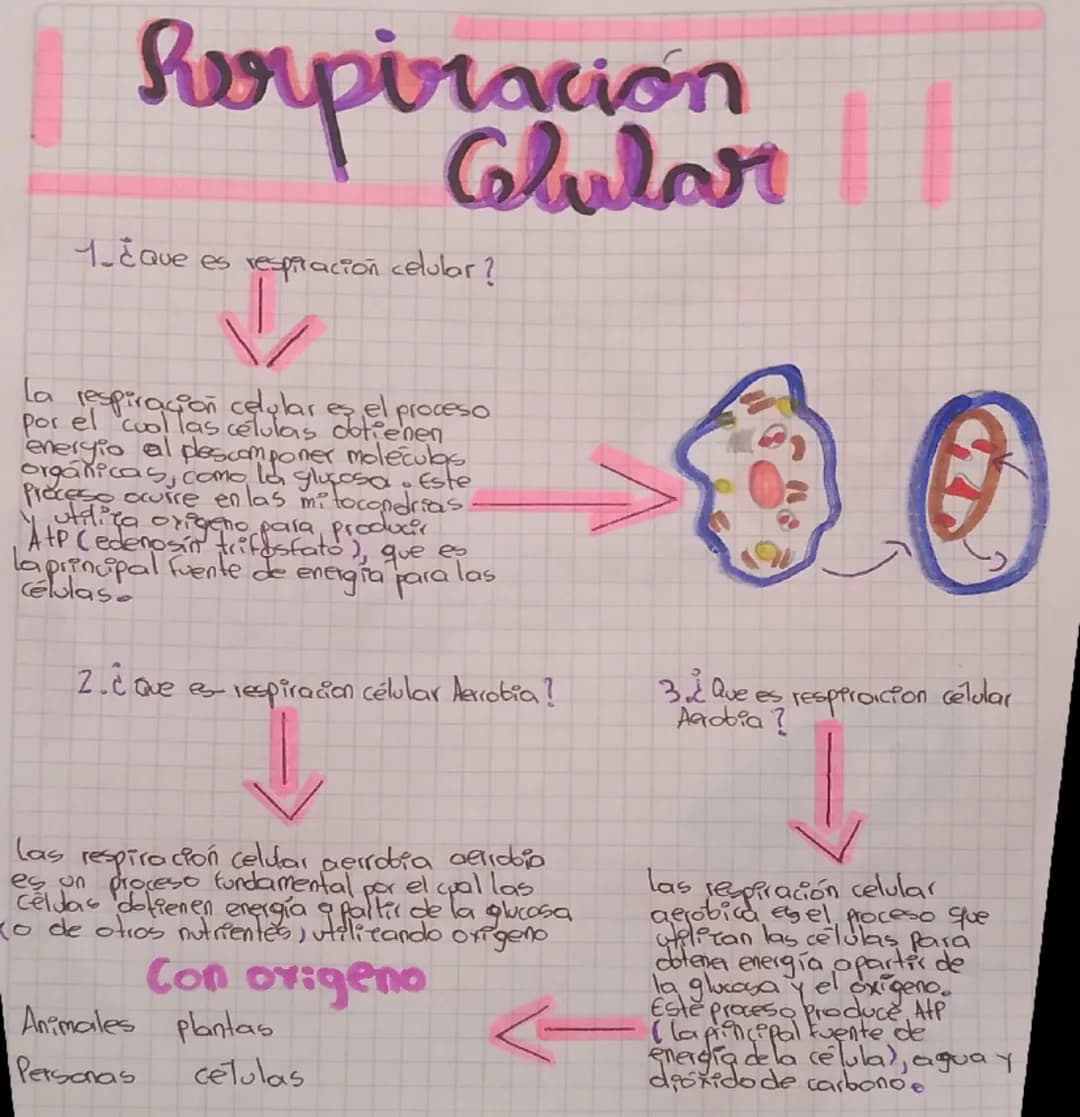 Respiración
Celular
1-¿Que es respiración celular?
La respiración celular es el proceso
por el cual las células obtienen
energía al descomponer moléculas
orgánicas, como la glucosa. Este
proceso ocurre en las mitocondrias
y utiliza oxigeno para producir
ATP (edenosín trifosfato), que es
la principal fuente de energía para las
células.
2.¿Que es respiracion célular Aerrobia?
las respiración celular aerrobia aerrobia
es un proceso fundamental por el cual las
células obtienen energía a partir de la glucosa
(o de otros nutrientes) utilizando oxígeno
Con oxigeno
Animales plantas
Personas células
3.¿Que es respiracion célular
Aerobia?
las respiración celular
aeróbica es el proceso que
utilizan las células para
obtener energía a partir de
la glucosa y el oxígeno.
Este proceso produce ATP
(la principal fuente de
energía de la célula), agua y
dióxido de carbono.